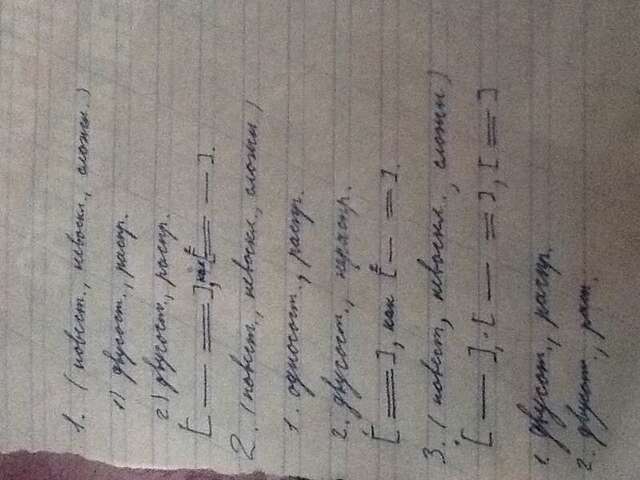 1. (повест., невоскл., сложн.)
1) двусост., распр.
2) двусост., распр.
[— ═], как [═ —].
2. (повест., невоскл., сложн)
1. односост., распр.
2. двусост., нераспр.
[═], как [— ═].
3. (повест, невоскл., сложн)
[—], [— ═], [═]
1. двусост., распр.
2. двусост.,